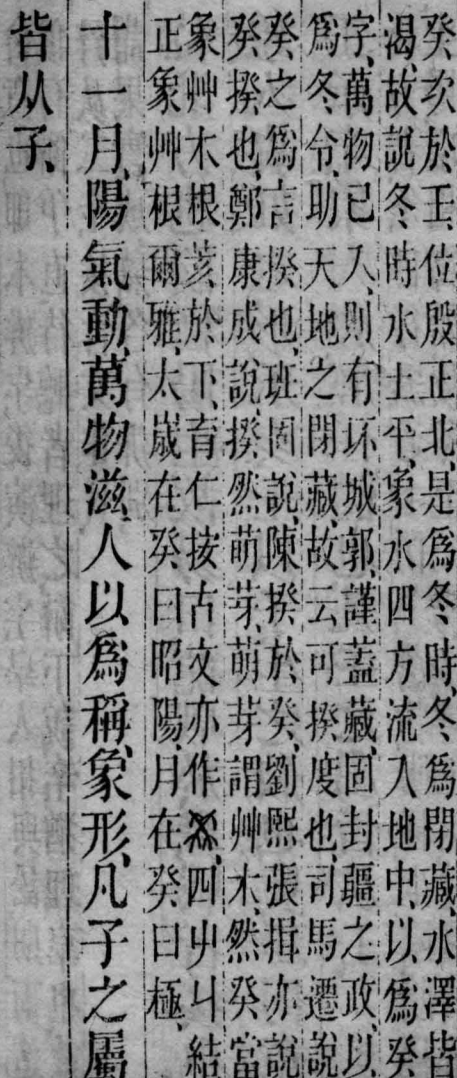 癸次於壬、位殷正北、是爲冬時、冬爲閉藏、水澤皆
渴、故說冬時水土平、象水四方流入地中、以爲癸
字、萬物已入、則有坏城郭、謹蓋藏、固封疆之政、以
爲冬令、助天地之閉藏、故云可揆度也、司馬遷說
癸之爲言揆也、班固說、陳揆於癸、劉熙張揖亦說
癸揆也、鄭康成說、揆然萌芽、萌芽謂艸木、然癸當
象艸木根荄於下、育仁按古文亦作四屮丩結
正象艸根、爾雅、太歲在癸曰昭陽、月在癸曰極、
十一月、陽氣動、萬物滋、人以爲稱、象形、凡子之屬
皆从子、